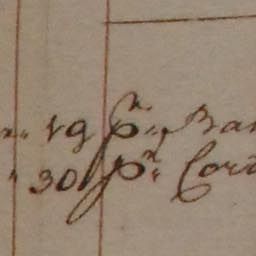 19 pr. Ban
30 pr. Cord